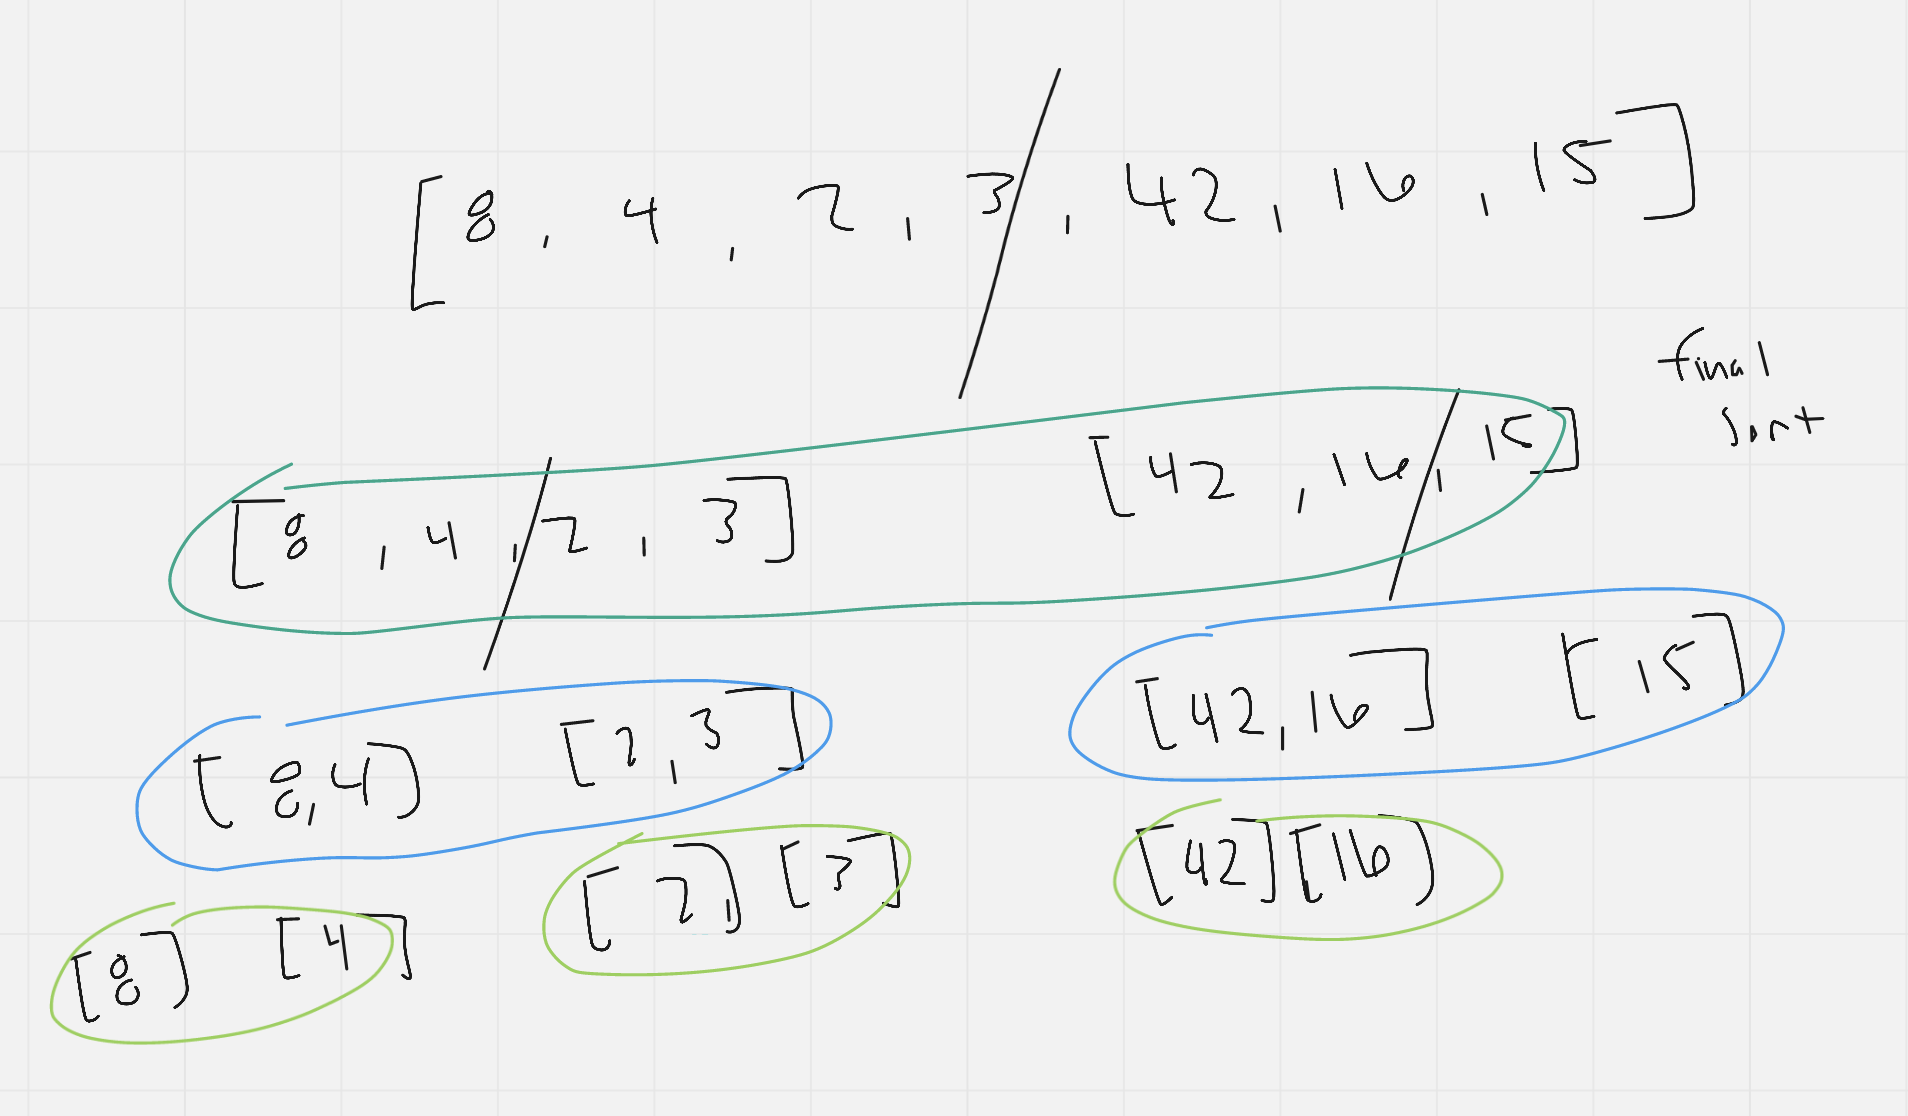 [8, 4, 2, 3, 42, 16, 15]
final
sort
[8, 4, 2, 3] [42, 16, 15]
[8,4] [2,3] [42,16] [15]
[8] [4] [2] [3] [42][16]